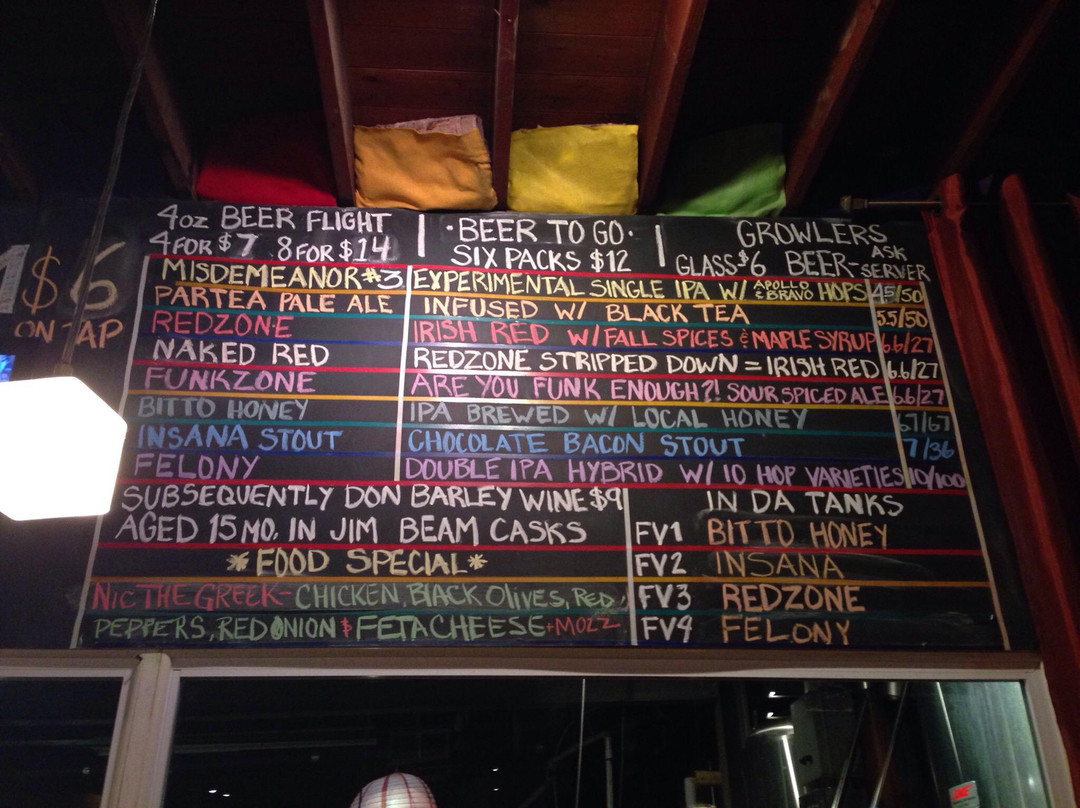 4oz BEER FLIGHT
4 FOR $7 8 FOR $14
·BEER TO GO·
SIX PACKS $12
GROWLERS
GLASS $6 BEER-ASK SERVER
$6
ON TAP
MISDEMEANOR #3 EXPERIMENTAL SINGLE IPA W/ APOLLO & BRAVO HOPS 45/50
PARTEA PALE ALE INFUSED W/ BLACK TEA 5.5/50
REDZONE IRISH RED W/ FALL SPICES & MAPLE SYRUP 6.6/27
NAKED RED REDZONE STRIPPED DOWN = IRISH RED 6.6/27
FUNKZONE ARE YOU FUNK ENOUGH?! SOUR SPICED ALE 6.6/27
BITTO HONEY IPA BREWED W/ LOCAL HONEY 67/67
INSANA STOUT CHOCOLATE BACON STOUT 7/36
FELONY DOUBLE IPA HYBRID W/ 10 HOP VARIETIES 10/100
SUBSEQUENTLY DON BARLEY WINE $9
AGED 15 MO. IN JIM BEAM CASKS
*FOOD SPECIAL*
NIC THE GREEK- CHICKEN BLACK OliVES, RED
PEPPERS, RED ONION & FETA CHEESE + MOZZ
IN DA TANKS
FV1 BITTO HONEY
FV2 INSANA
FV3 REDZONE
FV4 FELONY